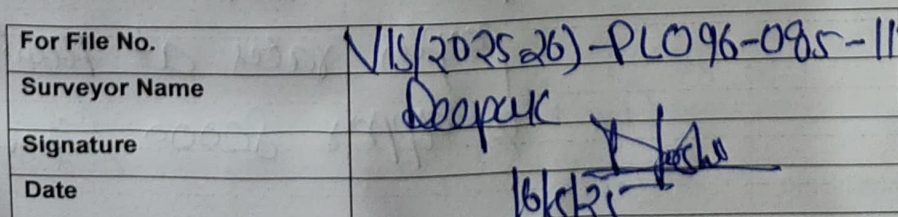 For File No. VIS(2025-26)-PL096-085-11
Surveyor Name Deepak
Signature
Date 16/5/25